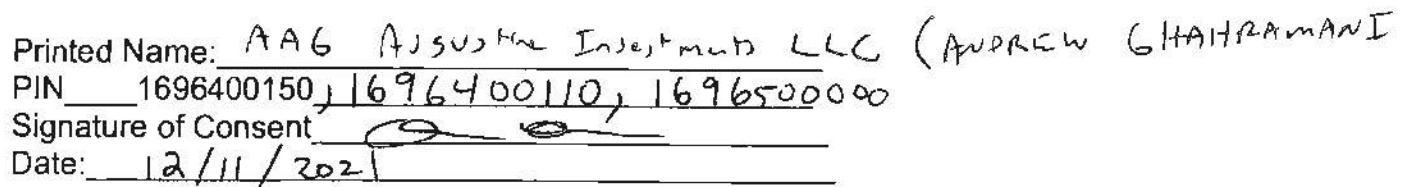 Printed Name: AAG Augustine Investments LLC (ANDREW GHAHRAMANI
PIN 1696400150, 1696400110, 1696500000
Signature of Consent
Date: 12/11/2021